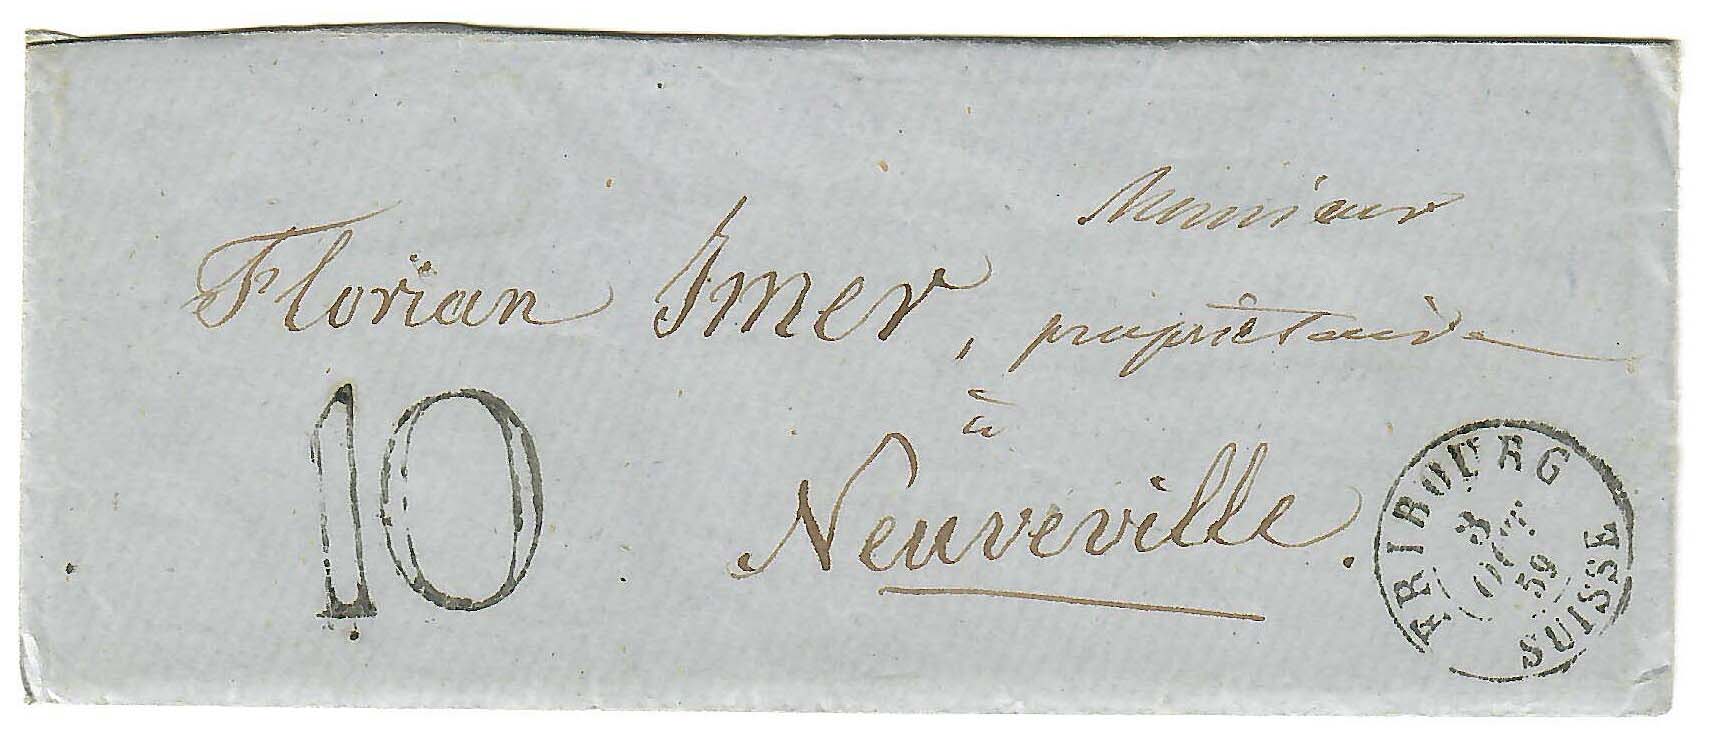 Monsieur
Florian Imer, propriétaire
à
Neuveville.
10
FRIBOURG
3
OCT
59
SUISSE